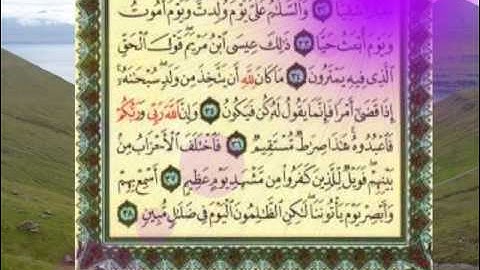 شَقِيًّا ٣٢ وَالسَّلَٰمُ عَلَىَّ يَوْمَ وُلِدتُّ وَيَوْمَ أَمُوتُ
وَيَوْمَ أُبْعَثُ حَيًّا ٣٣ ذَٰلِكَ عِيسَى ٱبْنُ مَرْيَمَ قَوْلَ ٱلْحَقِّ
ٱلَّذِى فِيهِ يَمْتَرُونَ ٣٤ مَا كَانَ لِلَّهِ أَن يَتَّخِذَ مِن وَلَدٍ سُبْحَٰنَهُۥٓ
إِذَا قَضَىٰٓ أَمْرًا فَإِنَّمَا يَقُولُ لَهُۥ كُن فَيَكُونُ ٣٥ وَإِنَّ ٱللَّهَ رَبِّى وَرَبُّكُمْ
فَٱعْبُدُوهُ هَٰذَا صِرَٰطٌ مُّسْتَقِيمٌ ٣٦ فَٱخْتَلَفَ ٱلْأَحْزَابُ مِنۢ
بَيْنِهِمْ فَوَيْلٌ لِّلَّذِينَ كَفَرُوا۟ مِن مَّشْهَدِ يَوْمٍ عَظِيمٍ ٣٧ أَسْمِعْ بِهِمْ
وَأَبْصِرْ يَوْمَ يَأْتُونَنَا لَٰكِنِ ٱلظَّٰلِمُونَ ٱلْيَوْمَ فِى ضَلَٰلٍ مُّبِينٍ ٣٨